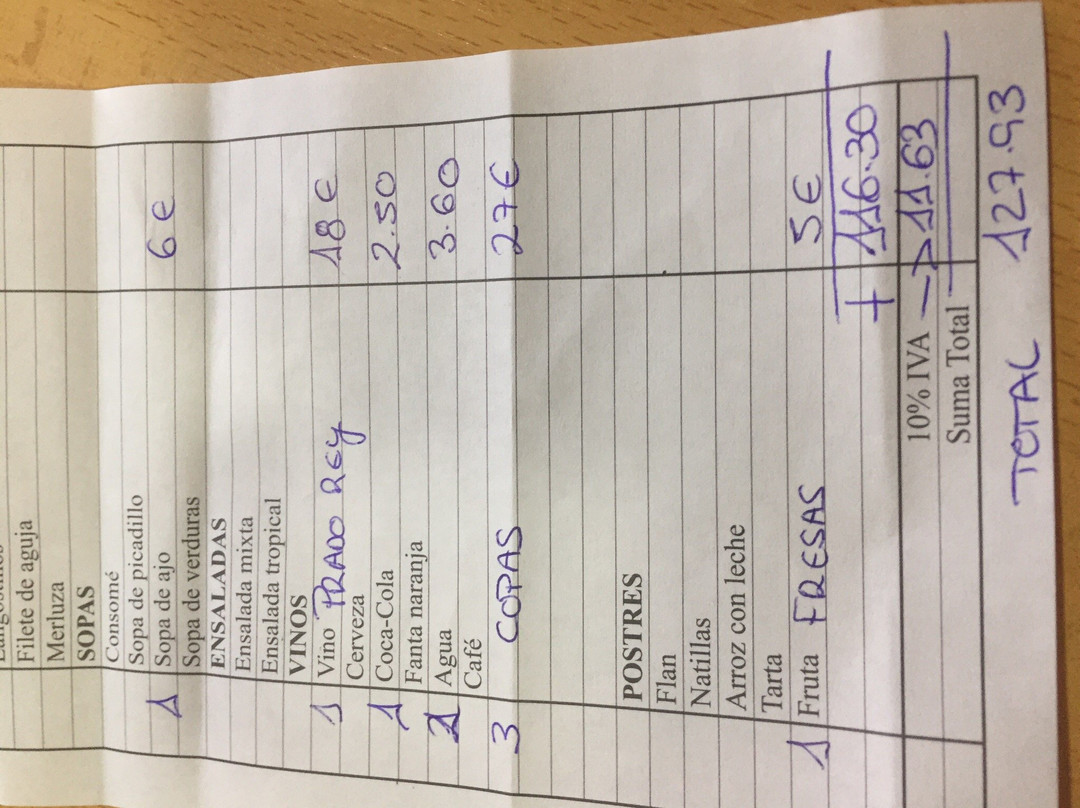 Filete de aguja
Merluza
SOPAS
Consomé
Sopa de picadillo
1 Sopa de ajo 6€
Sopa de verduras
ENSALADAS
Ensalada mixta
Ensalada tropical
VINOS
1 Vino PRADO REY 18€
Cerveza
1 Coca-Cola 2.50
Fanta naranja
Agua 3.60
Café
3 COPAS 27€
POSTRES
Flan
Natillas
Arroz con leche
Tarta
1 Fruta FRESAS 5€
+ 116.30
10% IVA —> 11.63
Suma Total
TOTAL 127.93